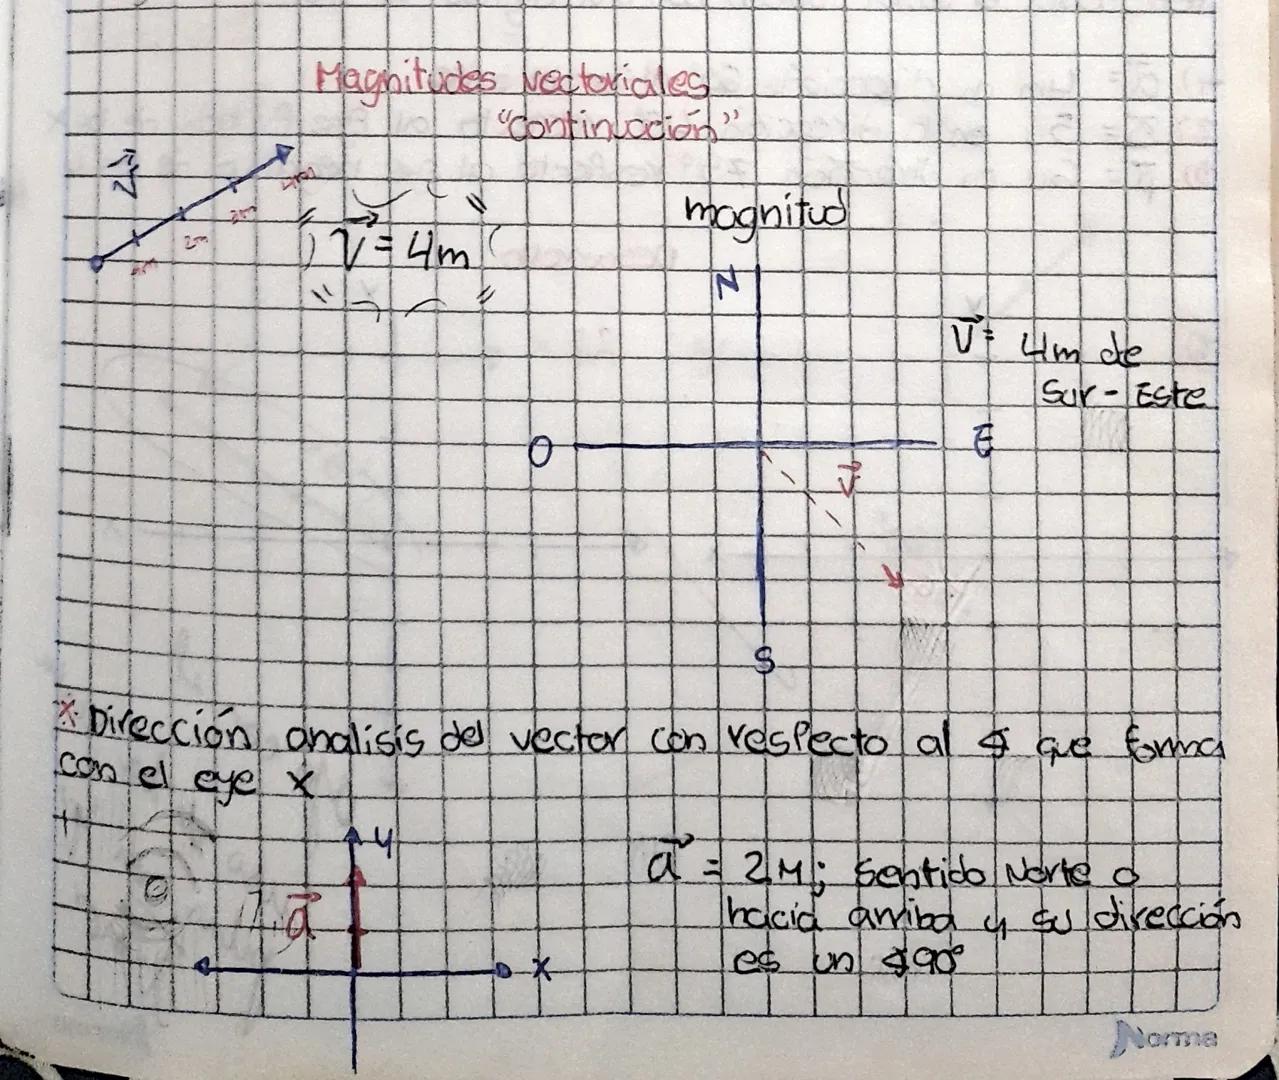 Magnitudes vectoriales
"continuación"
V
1m
2m
3m
4m
V = 4m
magnitud
N
V = 4m de
Sur - Este
O
E
V
S
* Dirección analisis del vector con respecto al ∢ que forma
con el eye x
y
a
x
a = 2M; Sentido Norte o
hacia arriba y su dirección
es un ∢90°
Norma